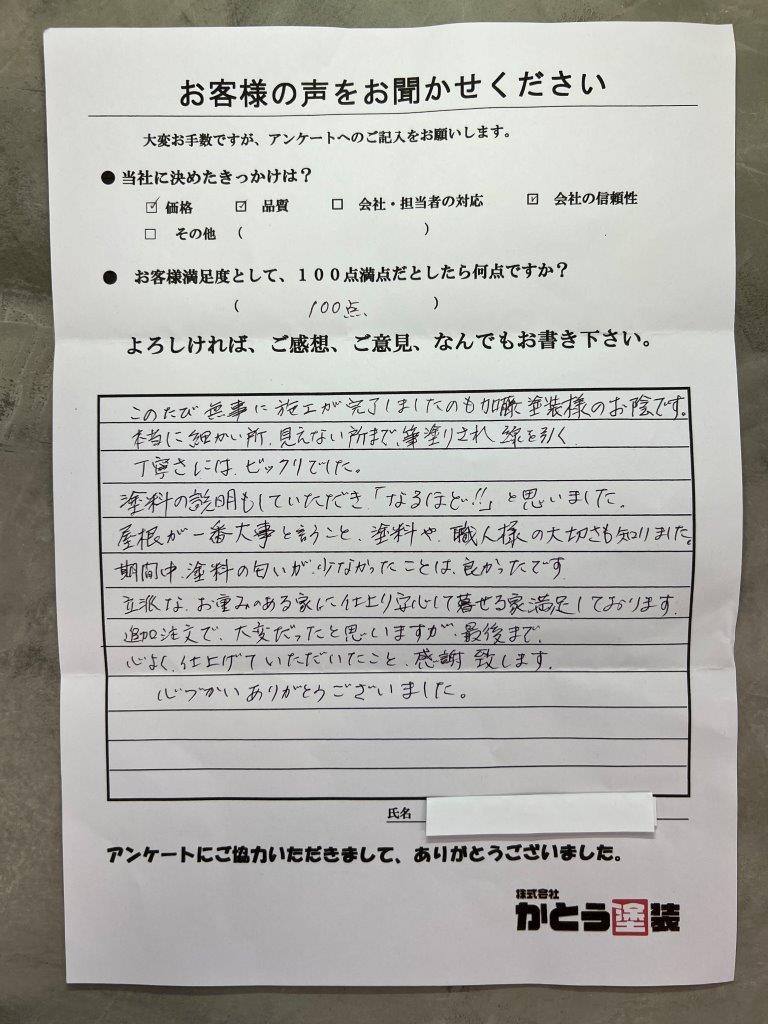 お客様の声をお聞かせください
大変お手数ですが、アンケートへのご記入をお願いします。
● 当社に決めたきっかけは？
☑ 価格 ☑ 品質 □ 会社・担当者の対応 ☑ 会社の信頼性
□ その他 ( )
● お客様満足度として、１００点満点だとしたら何点ですか？
( 100点、 )
よろしければ、ご感想、ご意見、なんでもお書き下さい。
このたび無事に施工が完了しましたのも加藤塗装様のお陰です。
本当に細かい所、見えない所まで、筆塗りされ線を引く
丁寧さには、ビックリでした。
塗料の説明もしていただき「なるほど!!」と思いました。
屋根が一番大事と言うこと、塗料や、職人様の大切さも知りました。
期間中、塗料の匂いが、少なかったことは、良かったです
立派な、お重みのある家に仕上り安心して暮せる家満足しております。
追加注文で、大変だったと思いますが、最後まで、
心よく、仕上げていただいたこと、感謝致します。
心づかいありがとうございました。
氏名
アンケートにご協力いただきまして、ありがとうございました。
株式会社
かとう塗装